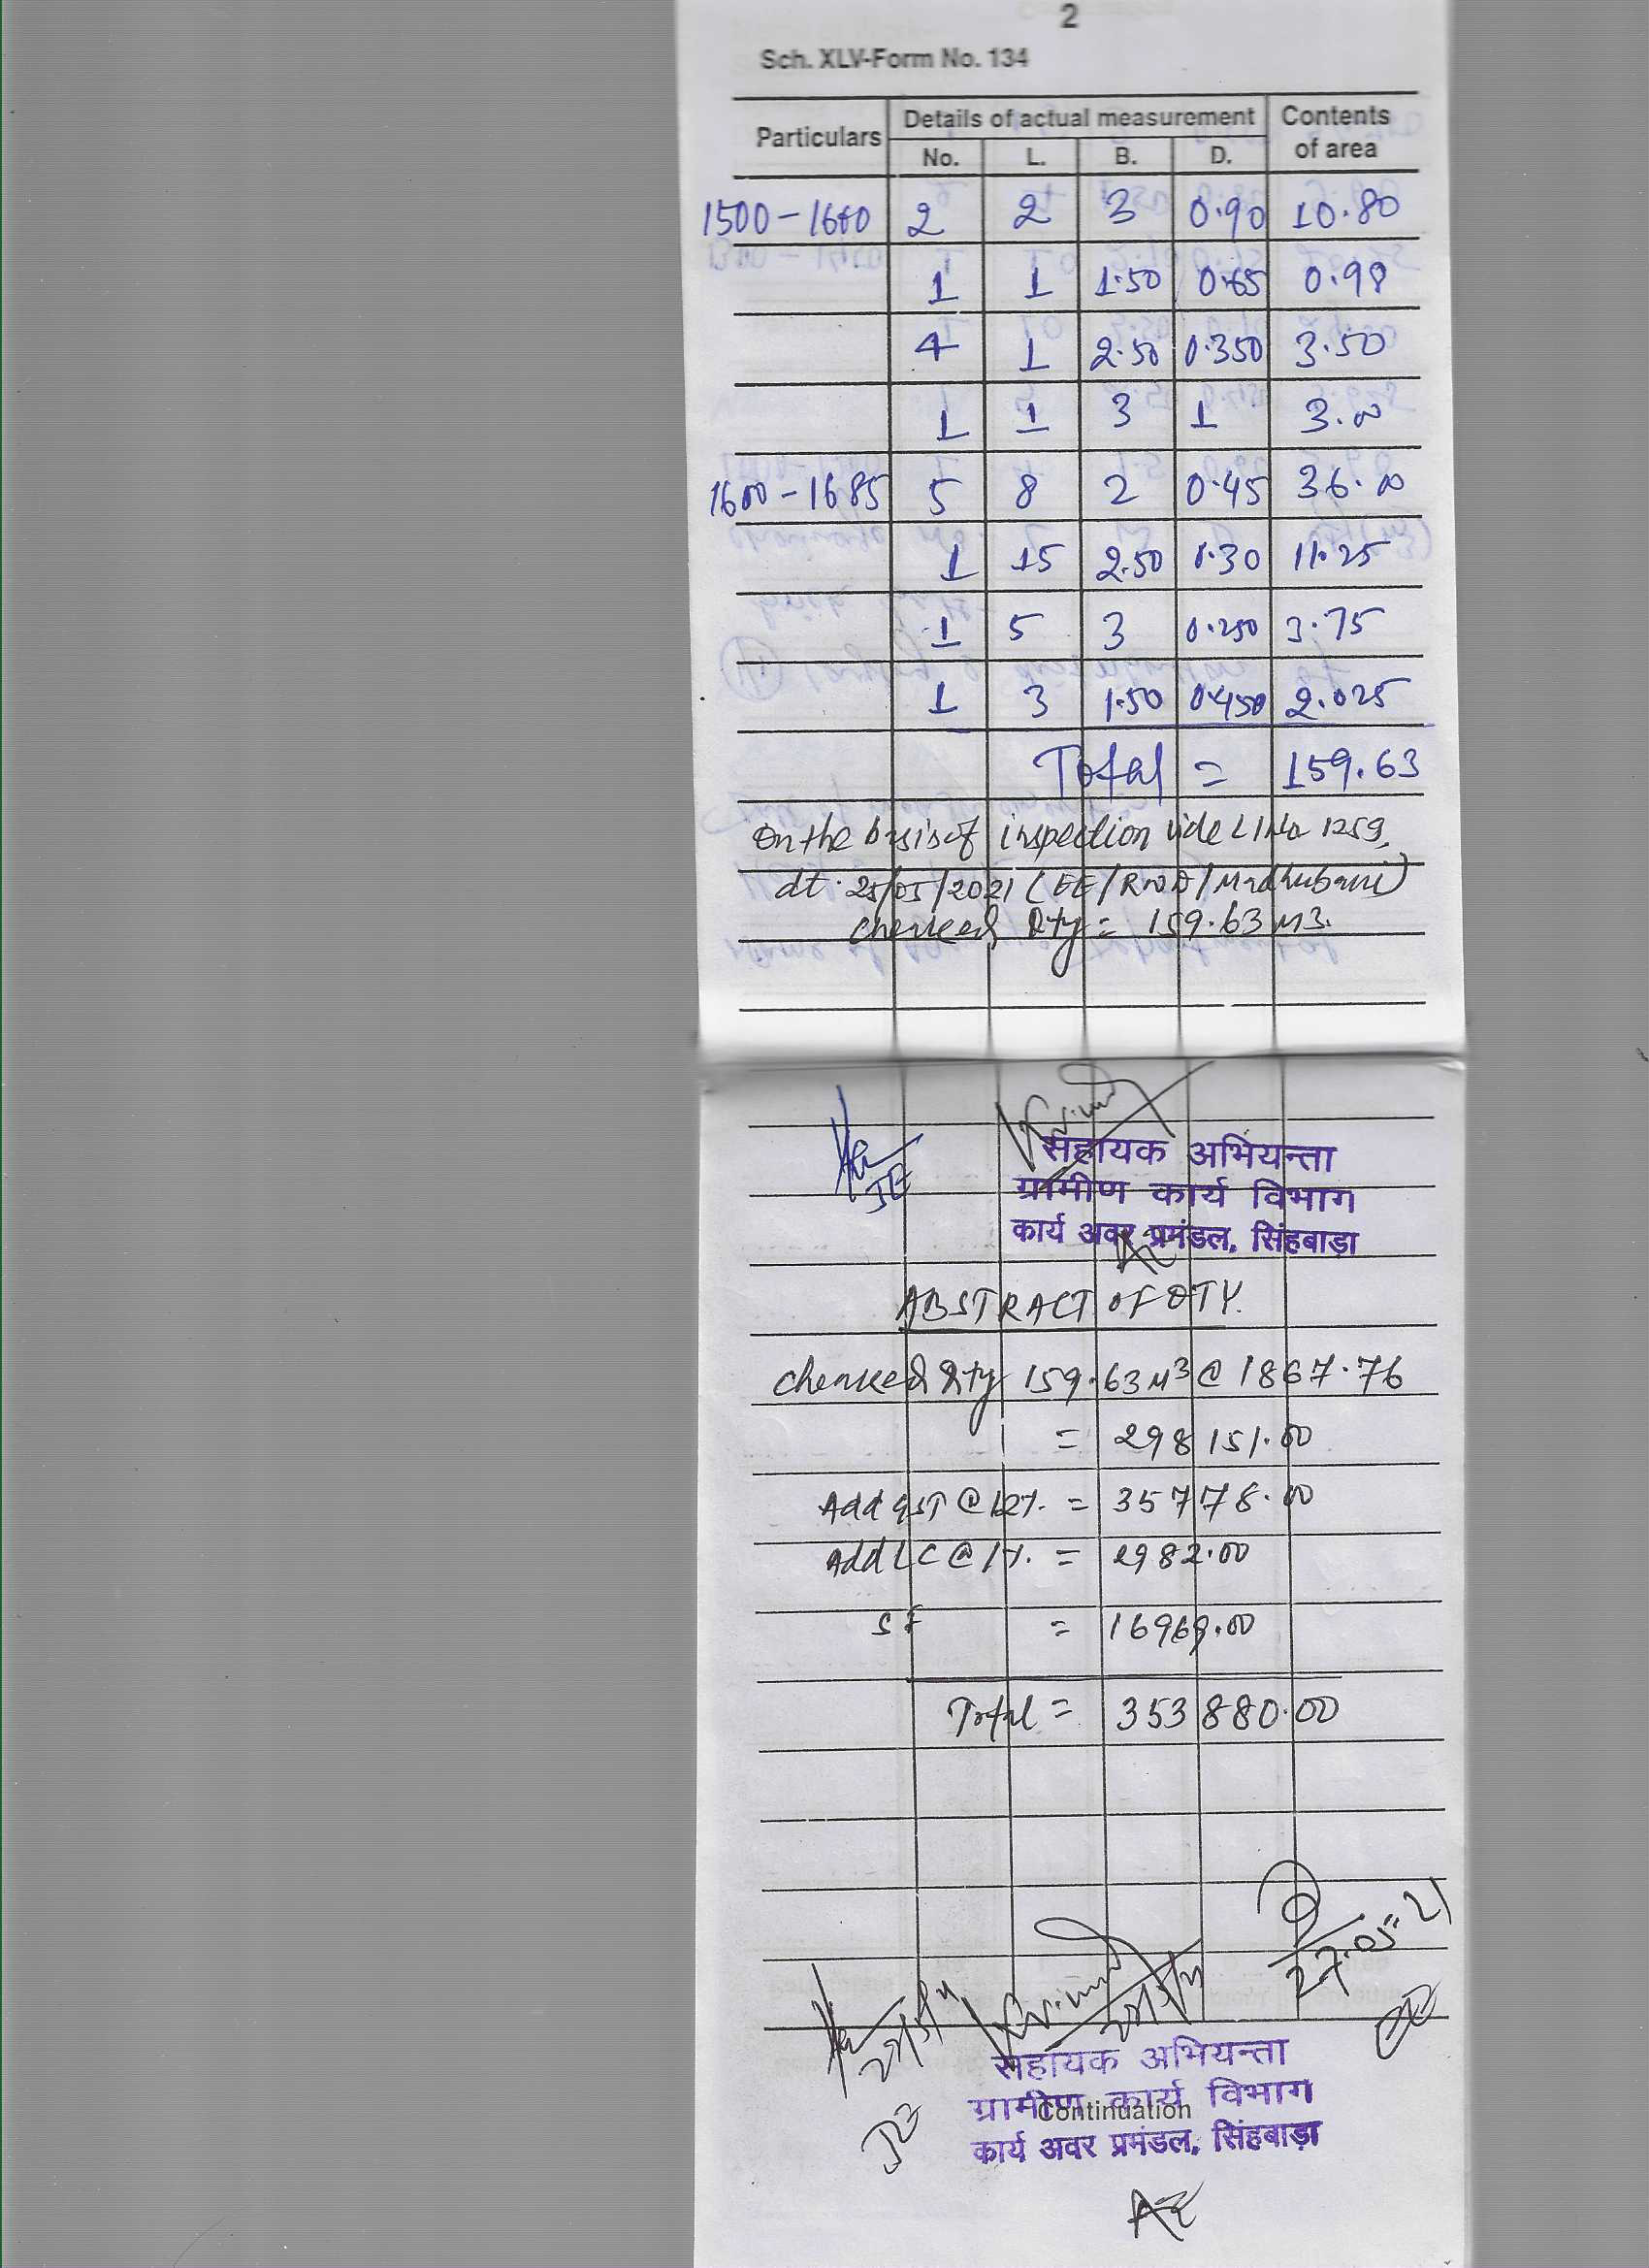 2
Sch. XLV-Form No. 134
Particulars Details of actual measurement Contents of area
No. L. B. D.
1500-1600 2 2 3 0.90 10.80
1 1 1.50 0.65 0.98
4 1 2.50 0.350 3.50
1 1 3 1 3.00
1600-1685 5 8 2 0.45 36.00
1 15 2.50 0.30 11.25
1 5 3 0.250 3.75
1 3 1.50 0.450 2.025
Total = 159.63
on the basis of inspection vide L1 No 1259,
dt. 25/05/2021 (EE/RWD/Madhubani)
checked Qty = 159.63 M3.
JE
सहायक अभियन्ता
ग्रामीण कार्य विभाग
कार्य अवर प्रमंडल, सिंहबाड़ा
AE
ABSTRACT OF QTY.
checked Qty 159.63 M3 @ 1867.76
= 298151.00
Add GST @ 12%. = 35778.00
Add LC @ 1%. = 2982.00
SF = 16969.00
Total = 353880.00
27.05.21
सहायक अभियन्ता
ग्रामीण कार्य विभाग
Continuation
कार्य अवर प्रमंडल, सिंहबाड़ा
JE
AE